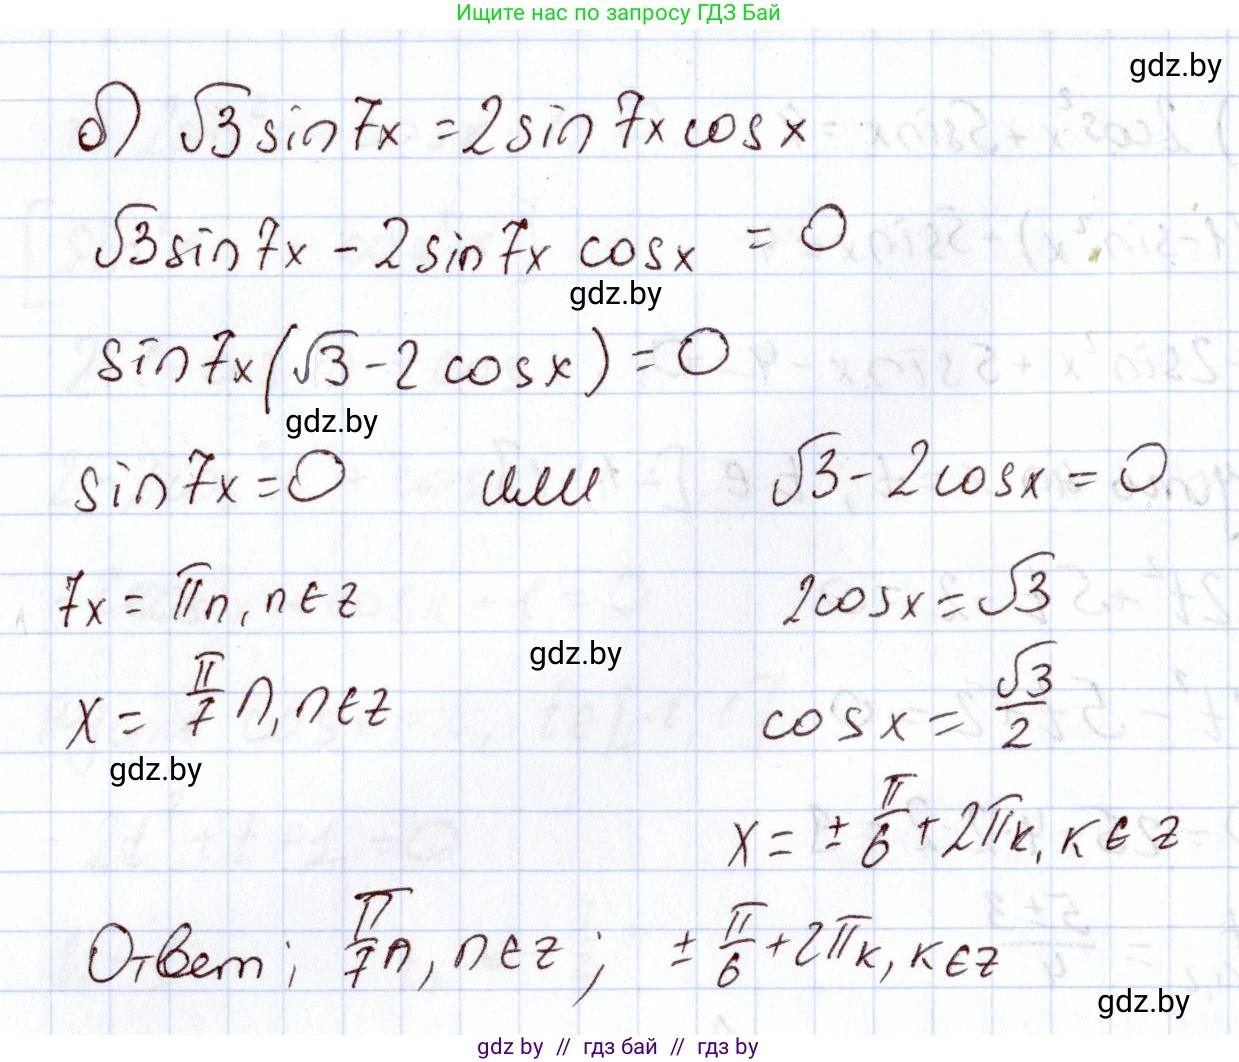 Ищите нас по запросу ГДЗ Бай
gdz.by
б) √3 sin7x = 2 sin 7x cos x
√3 sin7x - 2 sin7x cosx = 0
gdz.by
sin7x(√3 - 2 cos x) = 0
gdz.by
sin7x = 0 или √3 - 2cosx = 0
7x = πn, n∈z 2cosx = √3
gdz.by
x = π/7 n, n∈z cos x = √3/2
gdz.by
x = ± π/6 + 2πk, k∈z
Ответ; π/7 n, n∈z; ± π/6 + 2πk, k∈z
gdz.by
gdz by // гдз бай // гдз by